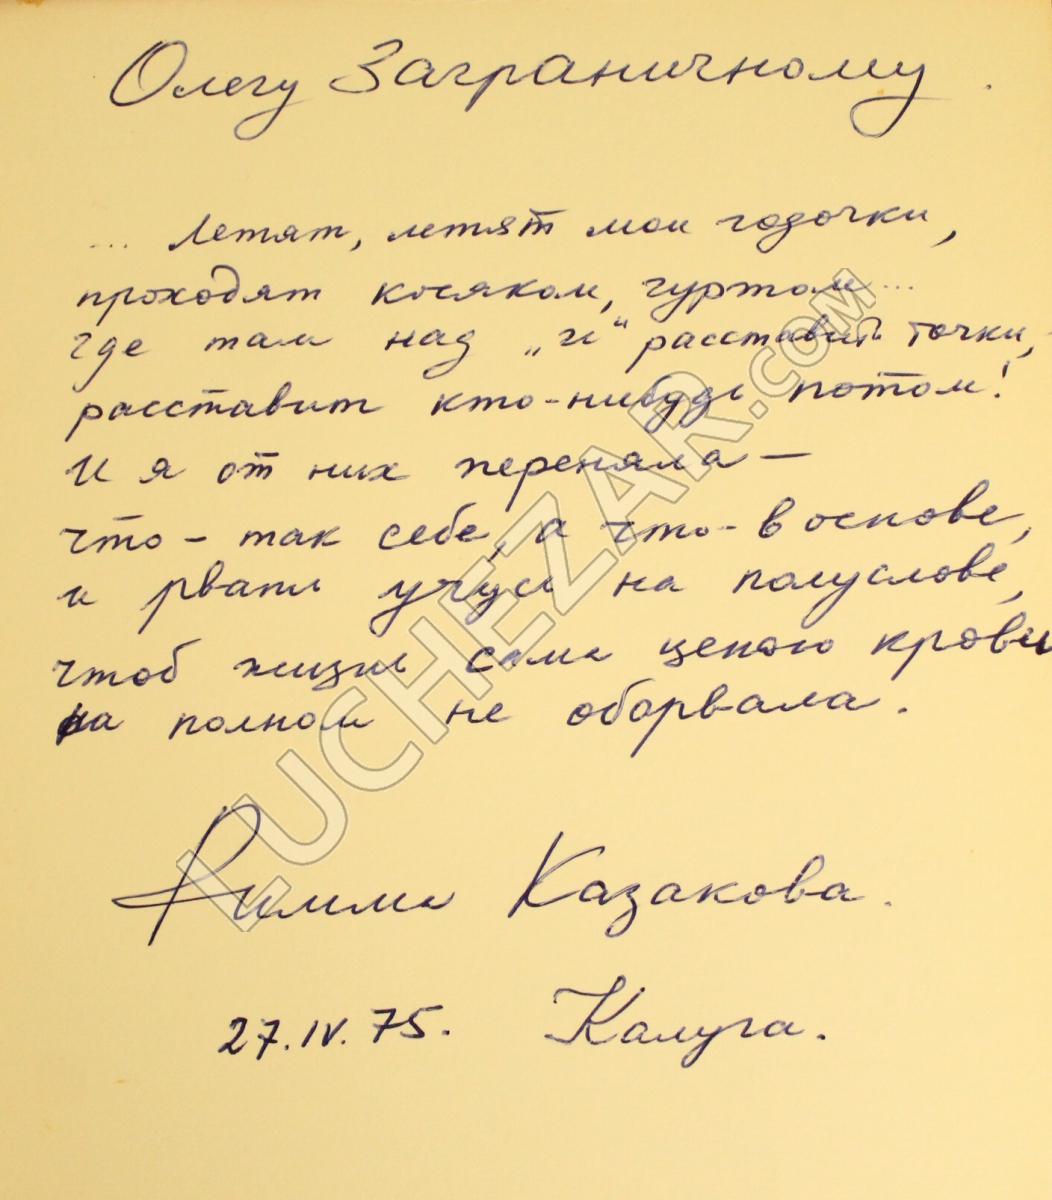 Олегу Заграничному.
... Летят, летят мои годочки,
проходят косяком, гуртом...
где там над „и“ расставить точки,
расставит кто-нибудь потом!
И я от них переняла —
что – так себе, а что – в основе,
и рвать учусь на полуслове,
чтоб жизнь сама ценою крови
на полном не оборвала.
Римма Казакова.
27.IV.75. Калуга.
LUCHEZAR.COM